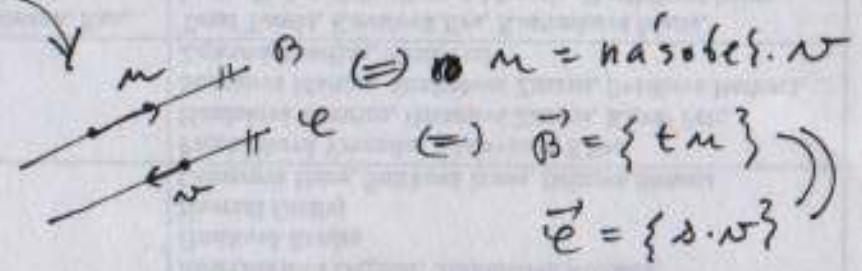 u B ⇔ u = násobek. v
v ℓ ⇔ B⃗ = { t u }
ℓ⃗ = { s · v }